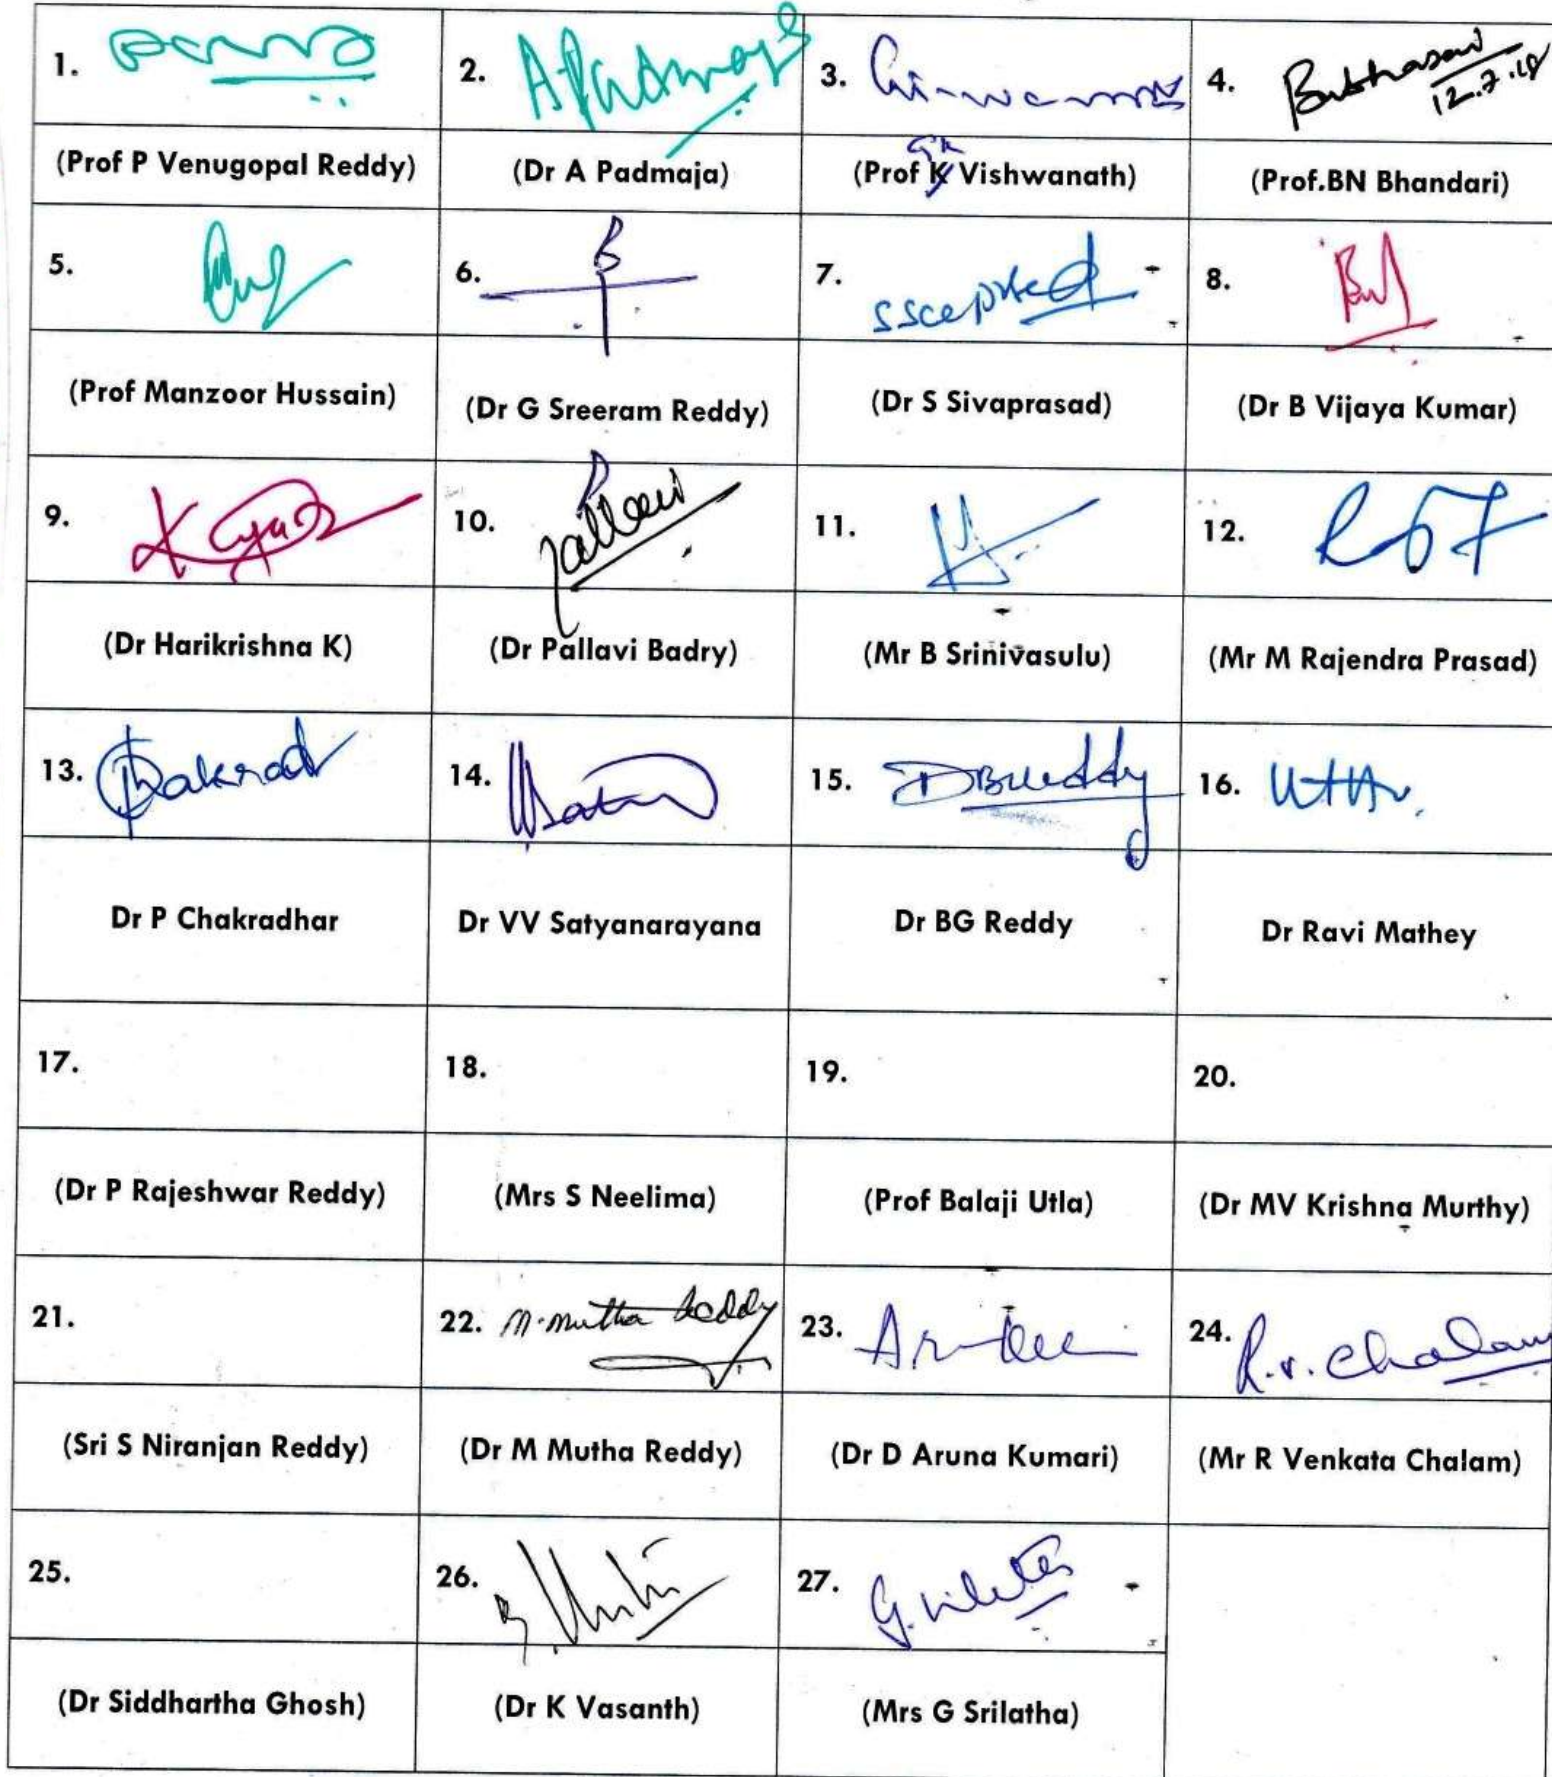 1. 2. A.Padmaja 3. 4. 12.7.18
(Prof P Venugopal Reddy) (Dr A Padmaja) (Prof K Vishwanath) (Prof.BN Bhandari)
5. 6. 7. 8.
(Prof Manzoor Hussain) (Dr G Sreeram Reddy) (Dr S Sivaprasad) (Dr B Vijaya Kumar)
9. 10. Pallavi 11. 12.
(Dr Harikrishna K) (Dr Pallavi Badry) (Mr B Srinivasulu) (Mr M Rajendra Prasad)
13. 14. 15. 16.
Dr P Chakradhar Dr VV Satyanarayana Dr BG Reddy Dr Ravi Mathey
17. 18. 19. 20.
(Dr P Rajeshwar Reddy) (Mrs S Neelima) (Prof Balaji Utla) (Dr MV Krishna Murthy)
21. 22. M. Mutha Reddy 23. 24. R.v. Chalam
(Sri S Niranjan Reddy) (Dr M Mutha Reddy) (Dr D Aruna Kumari) (Mr R Venkata Chalam)
25. 26. 27.
(Dr Siddhartha Ghosh) (Dr K Vasanth) (Mrs G Srilatha)